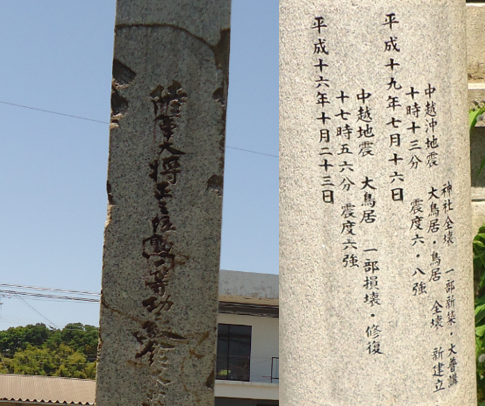 陸軍大将正
神社全壊 一部新築・大普請
中越沖地震 大鳥居・鳥居 全壊 新建立
十時十三分 震度六・八強
平成十九年七月十六日
中越地震 大鳥居 一部損壊・修復
十七時五六分 震度六強
平成十六年十月二十三日